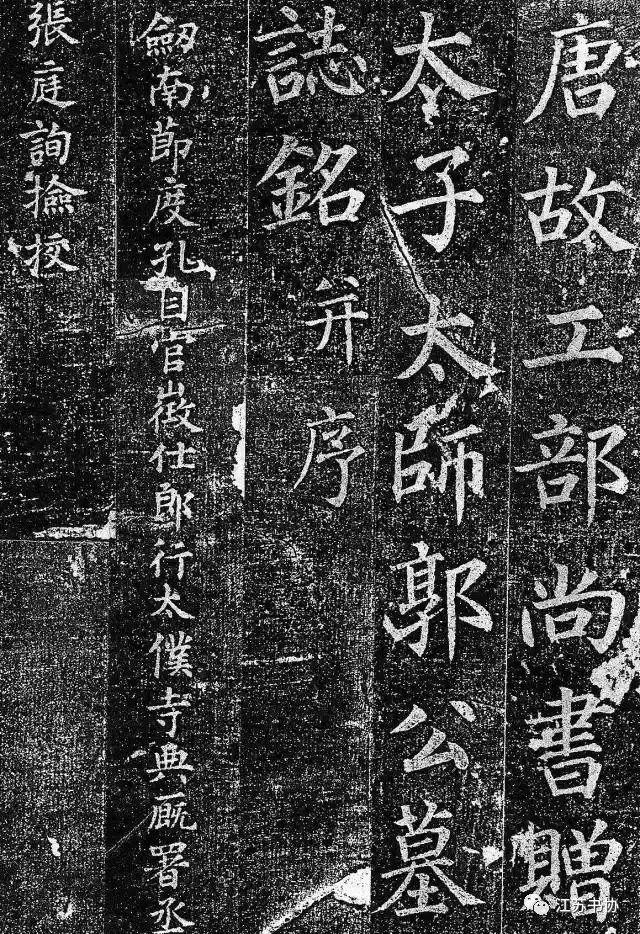 唐故工部尚書贈
太子太師郭公墓
誌銘并序
劔南節度孔目官徵仕郎行太僕寺典廐署丞
張庭詢撿挍
江苏书协